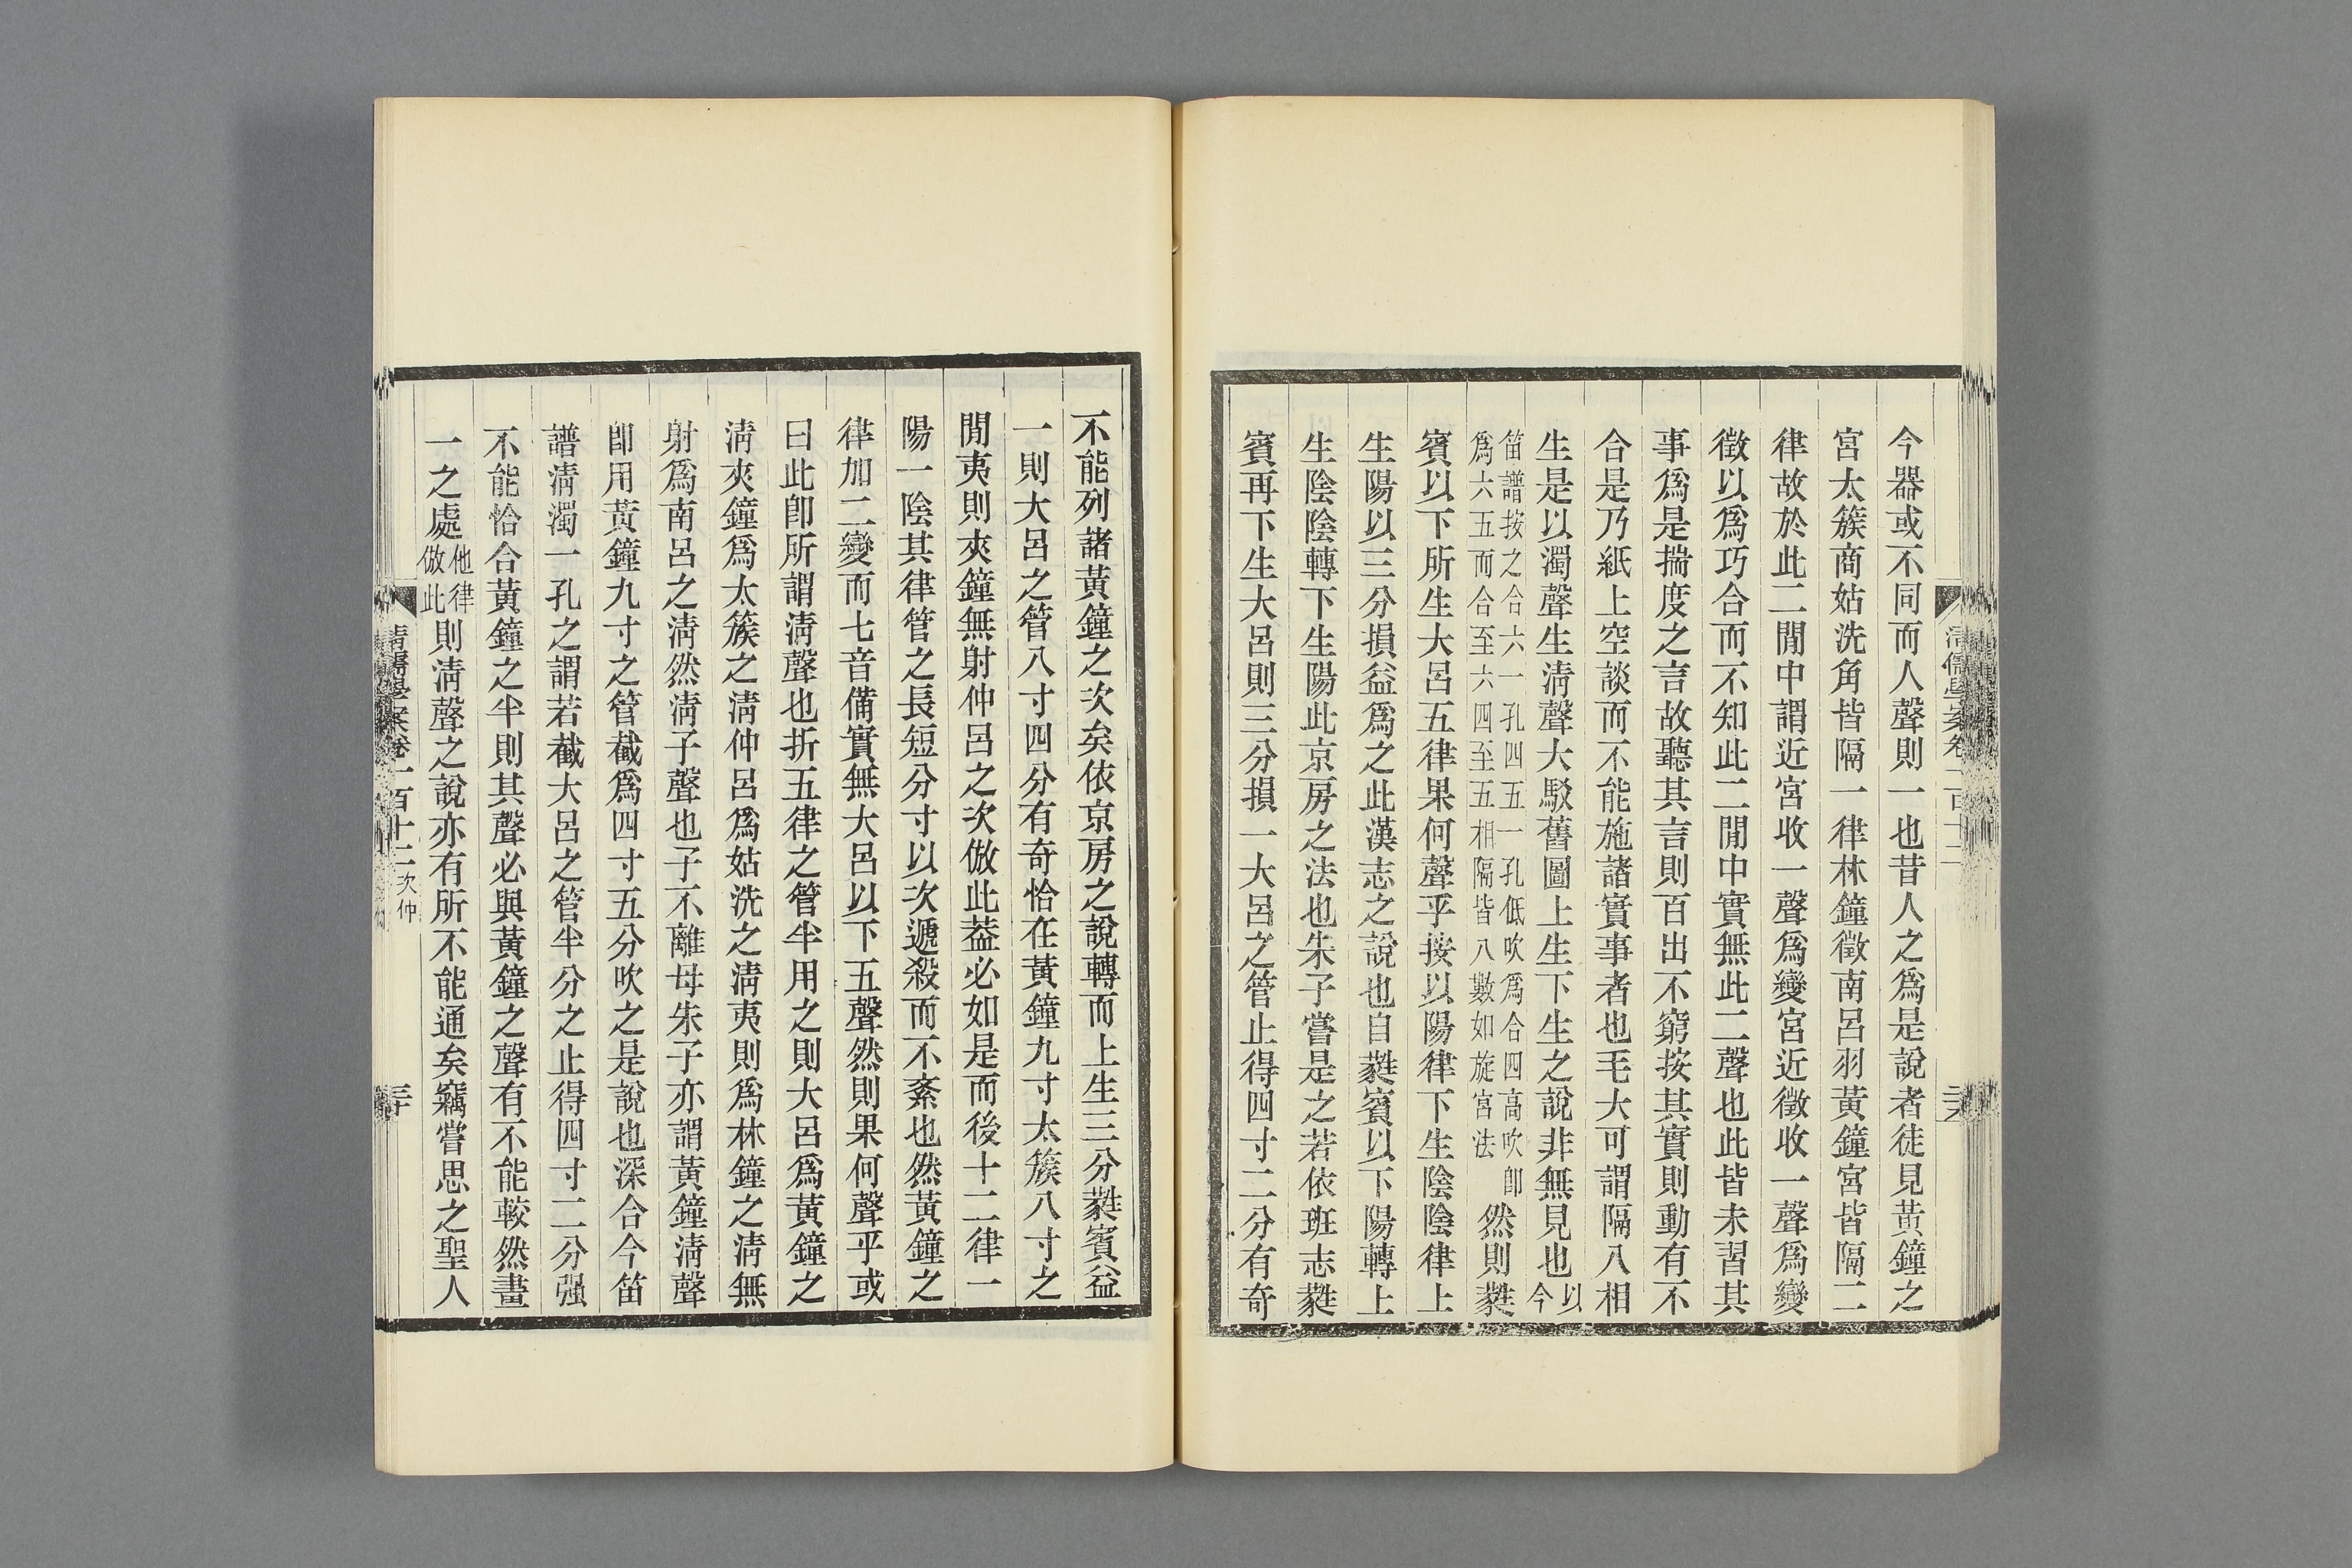 今器或不同而人聲則一也昔人之爲是說者徒見黃鐘之
宮太簇商姑洗角皆隔一律林鐘徵南呂羽黃鐘宮皆隔二
律故於此二閒中謂近宮收一聲爲變宮近徵收一聲爲變
徵以爲巧合而不知此二閒中實無此二聲也此皆未習其
事爲是揣度之言故聽其言則百出不窮按其實則動有不
合是乃紙上空談而不能施諸實事者也毛大可謂隔八相
生是以濁聲生淸聲大駁舊圖上生下生之說非無見也以今
笛譜按之合六一孔四五一孔低吹爲合四高吹卽
爲六五而合至六四至五相隔皆八數如旋宮法
然則蕤
賓以下所生大呂五律果何聲乎按以陽律下生陰陰律上
生陽以三分損益爲之此漢志之說也自蕤賓以下陽轉上
生陰陰轉下生陽此京房之法也朱子嘗是之若依班志蕤
賓再下生大呂則三分損一大呂之管止得四寸二分有奇
不能列諸黃鐘之次矣依京房之說轉而上生三分蕤賓益
一則大呂之管八寸四分有奇恰在黃鐘九寸太簇八寸之
閒夷則夾鐘無射仲呂之次倣此葢必如是而後十二律一
陽一陰其律管之長短分寸以次遞殺而不紊也然黃鐘之
律加二變而七音備實無大呂以下五聲然則果何聲乎或
曰此卽所謂淸聲也折五律之管半用之則大呂爲黃鐘之
淸夾鐘爲太簇之淸仲呂爲姑洗之淸夷則爲林鐘之淸無
射爲南呂之淸然淸子聲也子不離母朱子亦謂黃鐘淸聲
卽用黃鐘九寸之管截爲四寸五分吹之是說也深合今笛
譜淸濁一孔之謂若截大呂之管半分之止得四寸二分强
不能恰合黃鐘之半則其聲必與黃鐘之聲有不能較然畫
一之處他律倣此則淸聲之說亦有所不能通矣竊嘗思之聖人
淸儒學案卷一百十二 次仲
三十